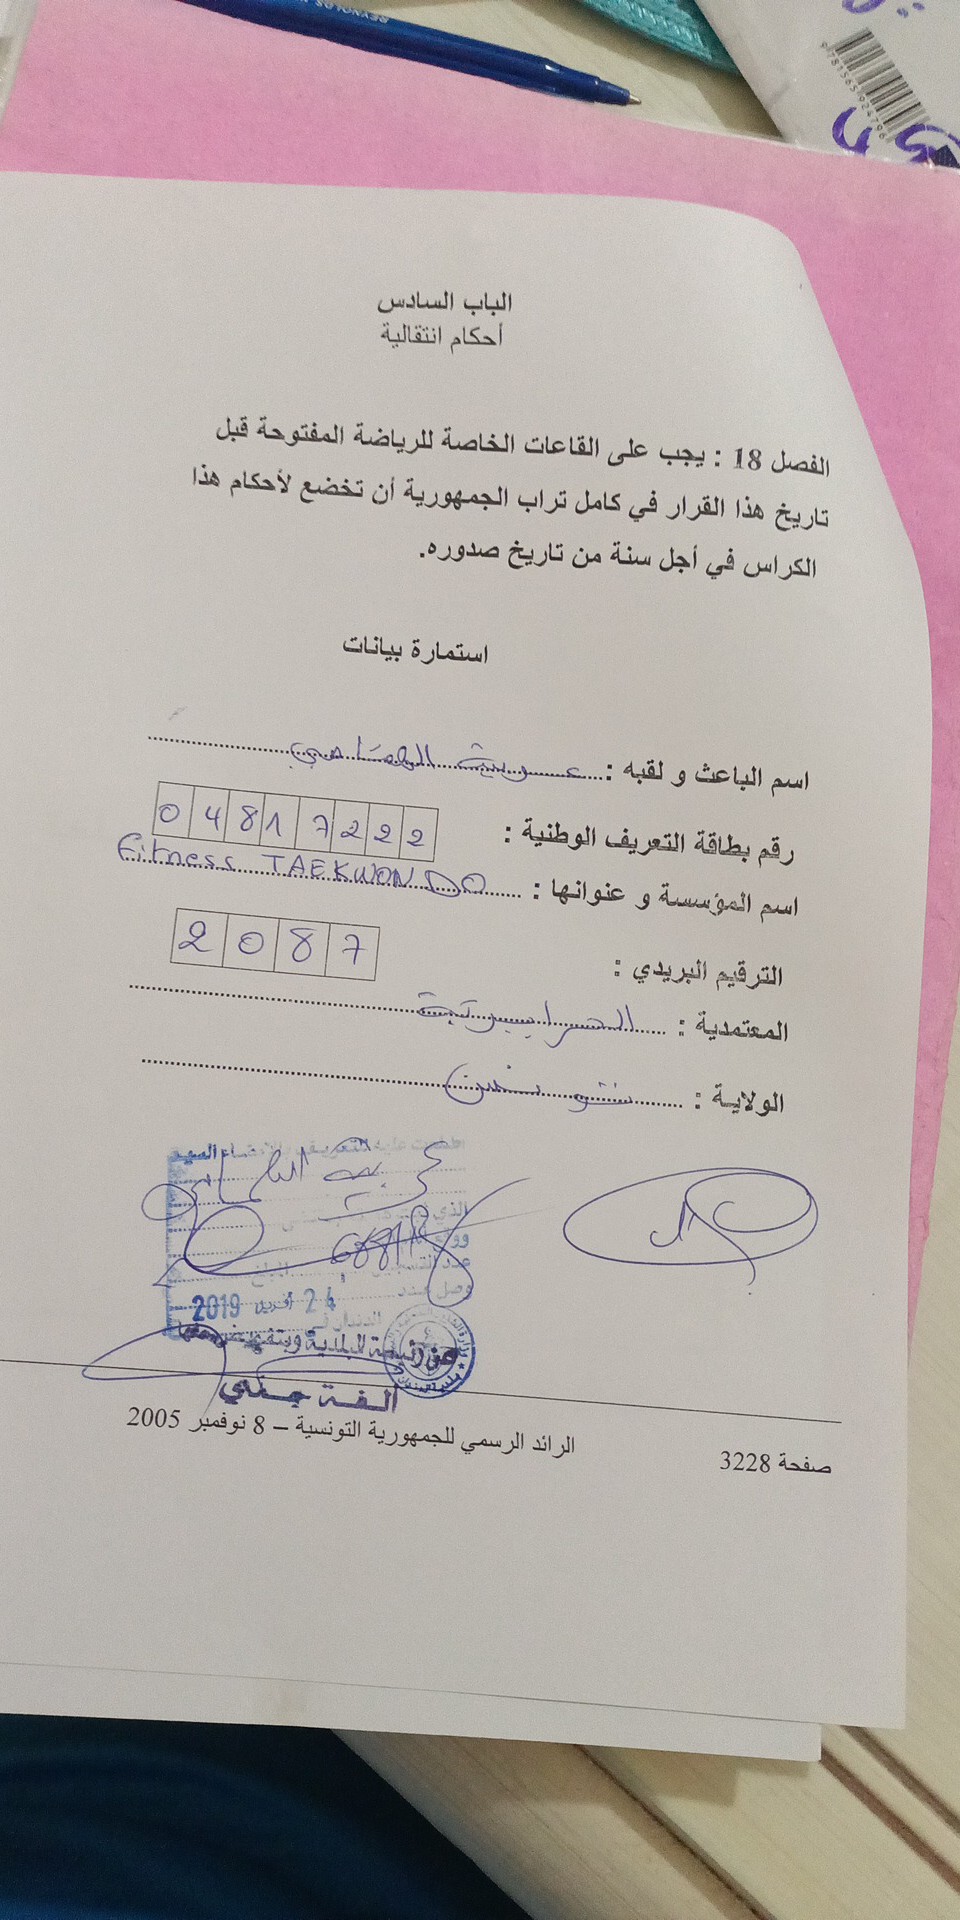 REYNOLDS
9781565924796
الباب السادس
أحكام انتقالية
الفصل 18 : يجب على القاعات الخاصة للرياضة المفتوحة قبل
تاريخ هذا القرار في كامل تراب الجمهورية أن تخضع لأحكام هذا
الكراس في أجل سنة من تاريخ صدوره.
استمارة بيانات
اسم الباعث و لقبه :
رقم بطاقة التعريف الوطنية : 04817222
اسم المؤسسة و عنوانها : Fitness TAEKWONDO
الترقيم البريدي : 2087
المعتمدية : الحرايرية
الولاية : تونس
24 أفريل 2019
الفة جنفي
الرائد الرسمي للجمهورية التونسية – 8 نوفمبر 2005
صفحة 3228